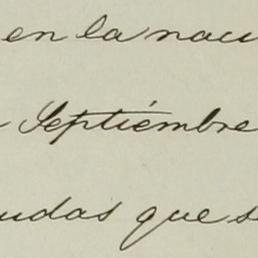 en la nacu
Septiémbre
udas que s